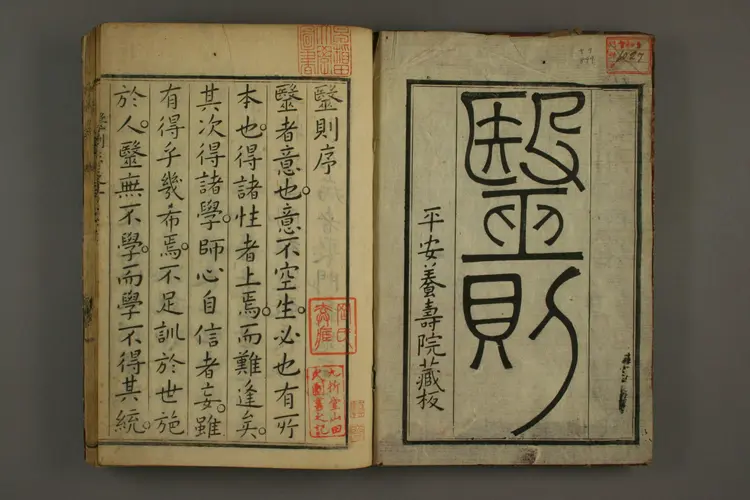 毉則
平安養壽院藏板
1027
毉則序
毉者意也意不空生必也有所
本也得諸性者上焉而難逢矣
其次得諸學師心自信者妄雖
有得乎幾希焉不足訓於世施
於人毉無不學而學不得其統